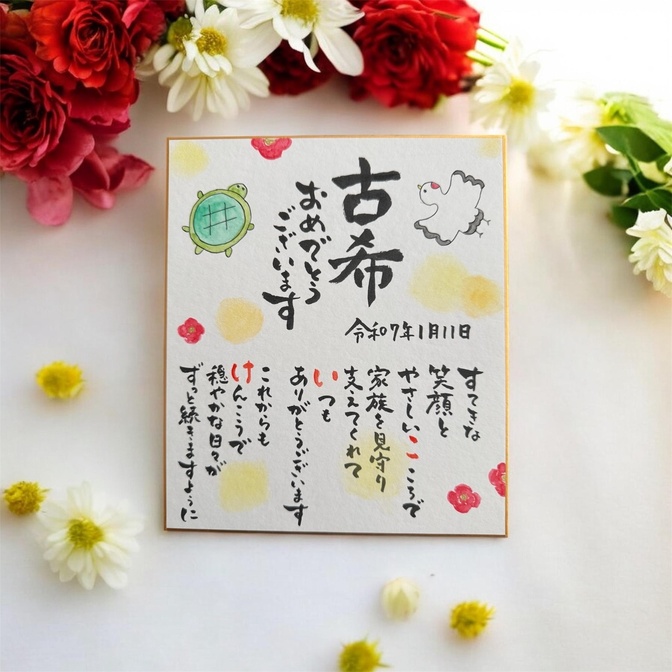 古希
おめでとう
ございます
令和7年1月11日
すてきな
笑顔と
やさしいこころで
家族を見守り
支えてくれて
いつも
ありがとうございます
これからも
けんこうで
穏やかな日々が
ずっと続きますように